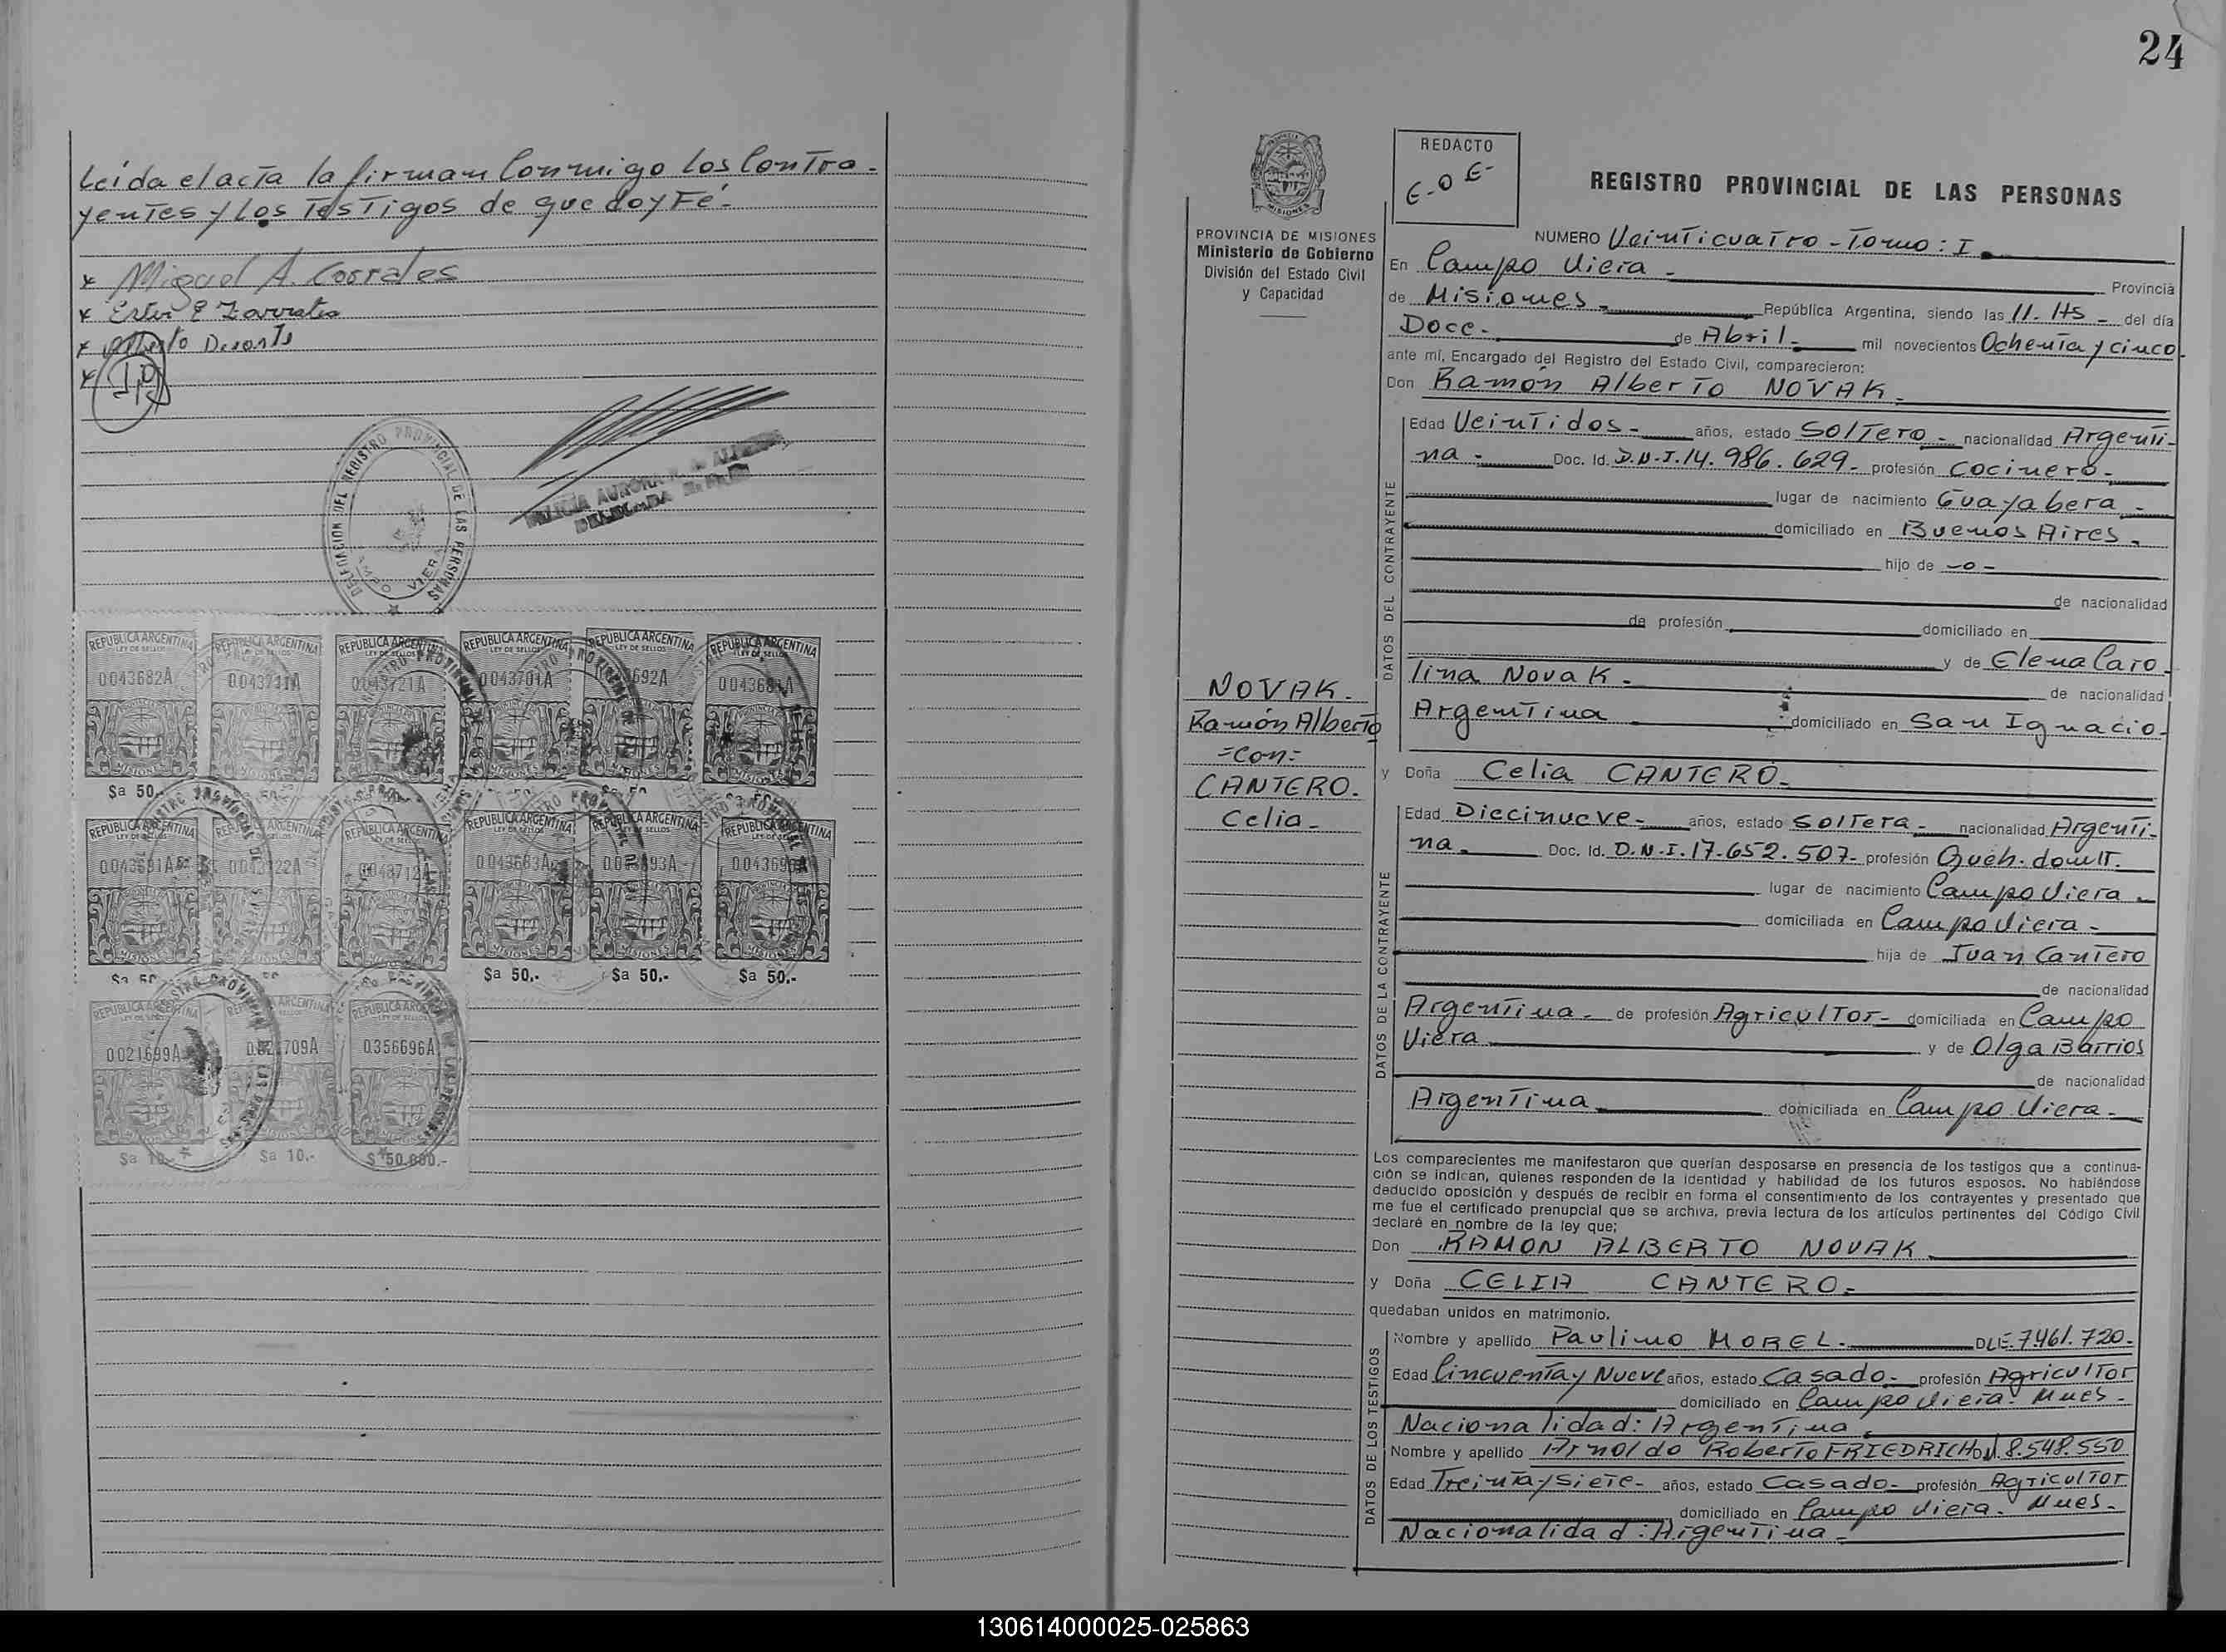 Leída el acta la firman Conmigo los Contra-
yentes y Los Testigos de que doy Fé.-
x Miguel A. Corrales
x Ester E Zarrate
x Alberto
x
DELEGACION DEL REGISTRO PROVINCIAL DE LAS PERSONAS
CAMPO VIERA
REPUBLICA ARGENTINA REPUBLICA ARGENTINA REPUBLICA ARGENTINA REPUBLICA ARGENTINA REPUBLICA ARGENTINA REPUBLICA ARGENTINA
LEY DE SELLOS LEY DE SELLOS LEY DE SELLOS LEY DE SELLOS LEY DE SELLOS
0043682A 0043711A 0043721A 0043701A 692A
MISIONES MISIONES MISIONES MISIONES MISIONES MISIONES
$a 50.-
REPUBLICA ARGENTINA REPUBLICA ARGENTINA REPUBLICA ARGENTINA REPUBLICA ARGENTINA REPUBLICA ARGENTINA REPUBLICA ARGENTINA
0043712A 0043683A
MISIONES MISIONES MISIONES MISIONES MISIONES MISIONES
$a 50.- $a 50.- $a 50.-
REPUBLICA ARGENTINA REPUBLICA ARGENTINA REPUBLICA ARGENTINA
0021699A 709A 0356696A
$a 10.- $a 10.- $ 50.000.-
24
REDACTO
E-O E-
REGISTRO PROVINCIAL DE LAS PERSONAS
PROVINCIA DE MISIONES
Ministerio de Gobierno
División del Estado Civil
y Capacidad
NUMERO Veinticuatro - Tomo: I.
En Campo Viera - Provincia
de Misiones - República Argentina, siendo las 11. Hs - del día
Doce.- de Abril - mil novecientos Ochenta y cinco.
ante mí, Encargado del Registro del Estado Civil, comparecieron:
Don Ramón Alberto NOVAK.
DATOS DEL CONTRAYENTE
Edad Veintidos - años, estado Soltero - nacionalidad Argenti-
na - Doc. Id. D.N.I. 14.986.629 - profesión Cocinero -
lugar de nacimiento Guayabera -
domiciliado en Buenos Aires -
hijo de -o-
de nacionalidad
de profesión domiciliado en
y de Elena Caro
lina Novak - de nacionalidad
Argentina domiciliado en San Ignacio -
NOVAK.
Ramón Alberto
=con=
CANTERO.
Celia -
y Doña Celia CANTERO -
DATOS DE LA CONTRAYENTE
Edad Diecinueve - años, estado Soltera - nacionalidad Argenti-
na - Doc. Id. D.N.I. 17.652.507 - profesión Queh. domt.
lugar de nacimiento Campo Viera -
domiciliada en Campo Viera -
hija de Juan Cantero
de nacionalidad
Argentina - de profesión Agricultor - domiciliada en Campo
Viera y de Olga Barrios
de nacionalidad
Argentina domiciliada en Campo Viera -
Los comparecientes me manifestaron que querían desposarse en presencia de los testigos que a continua-
ción se indican, quienes responden de la identidad y habilidad de los futuros esposos. No habiéndose
deducido oposición y después de recibir en forma el consentimiento de los contrayentes y presentado que
me fue el certificado prenupcial que se archiva, previa lectura de los artículos pertinentes del Código Civil
declaré en nombre de la ley que;
Don RAMON ALBERTO NOVAK
y Doña CELIA CANTERO -
quedaban unidos en matrimonio.
DATOS DE LOS TESTIGOS
Nombre y apellido Paulino MOREL - DLE. 7.461.720 -
Edad Cincuenta y Nueve años, estado Casado - profesión Agricultor
domiciliado en Campo Viera. Mnes -
Nacionalidad: Argentina.
Nombre y apellido Arnoldo Roberto FRIEDRICH 8.548.550
Edad Treinta y siete - años, estado Casado - profesión Agricultor
domiciliado en Campo Viera. Mnes -
Nacionalidad: Argentina -
130614000025-025863